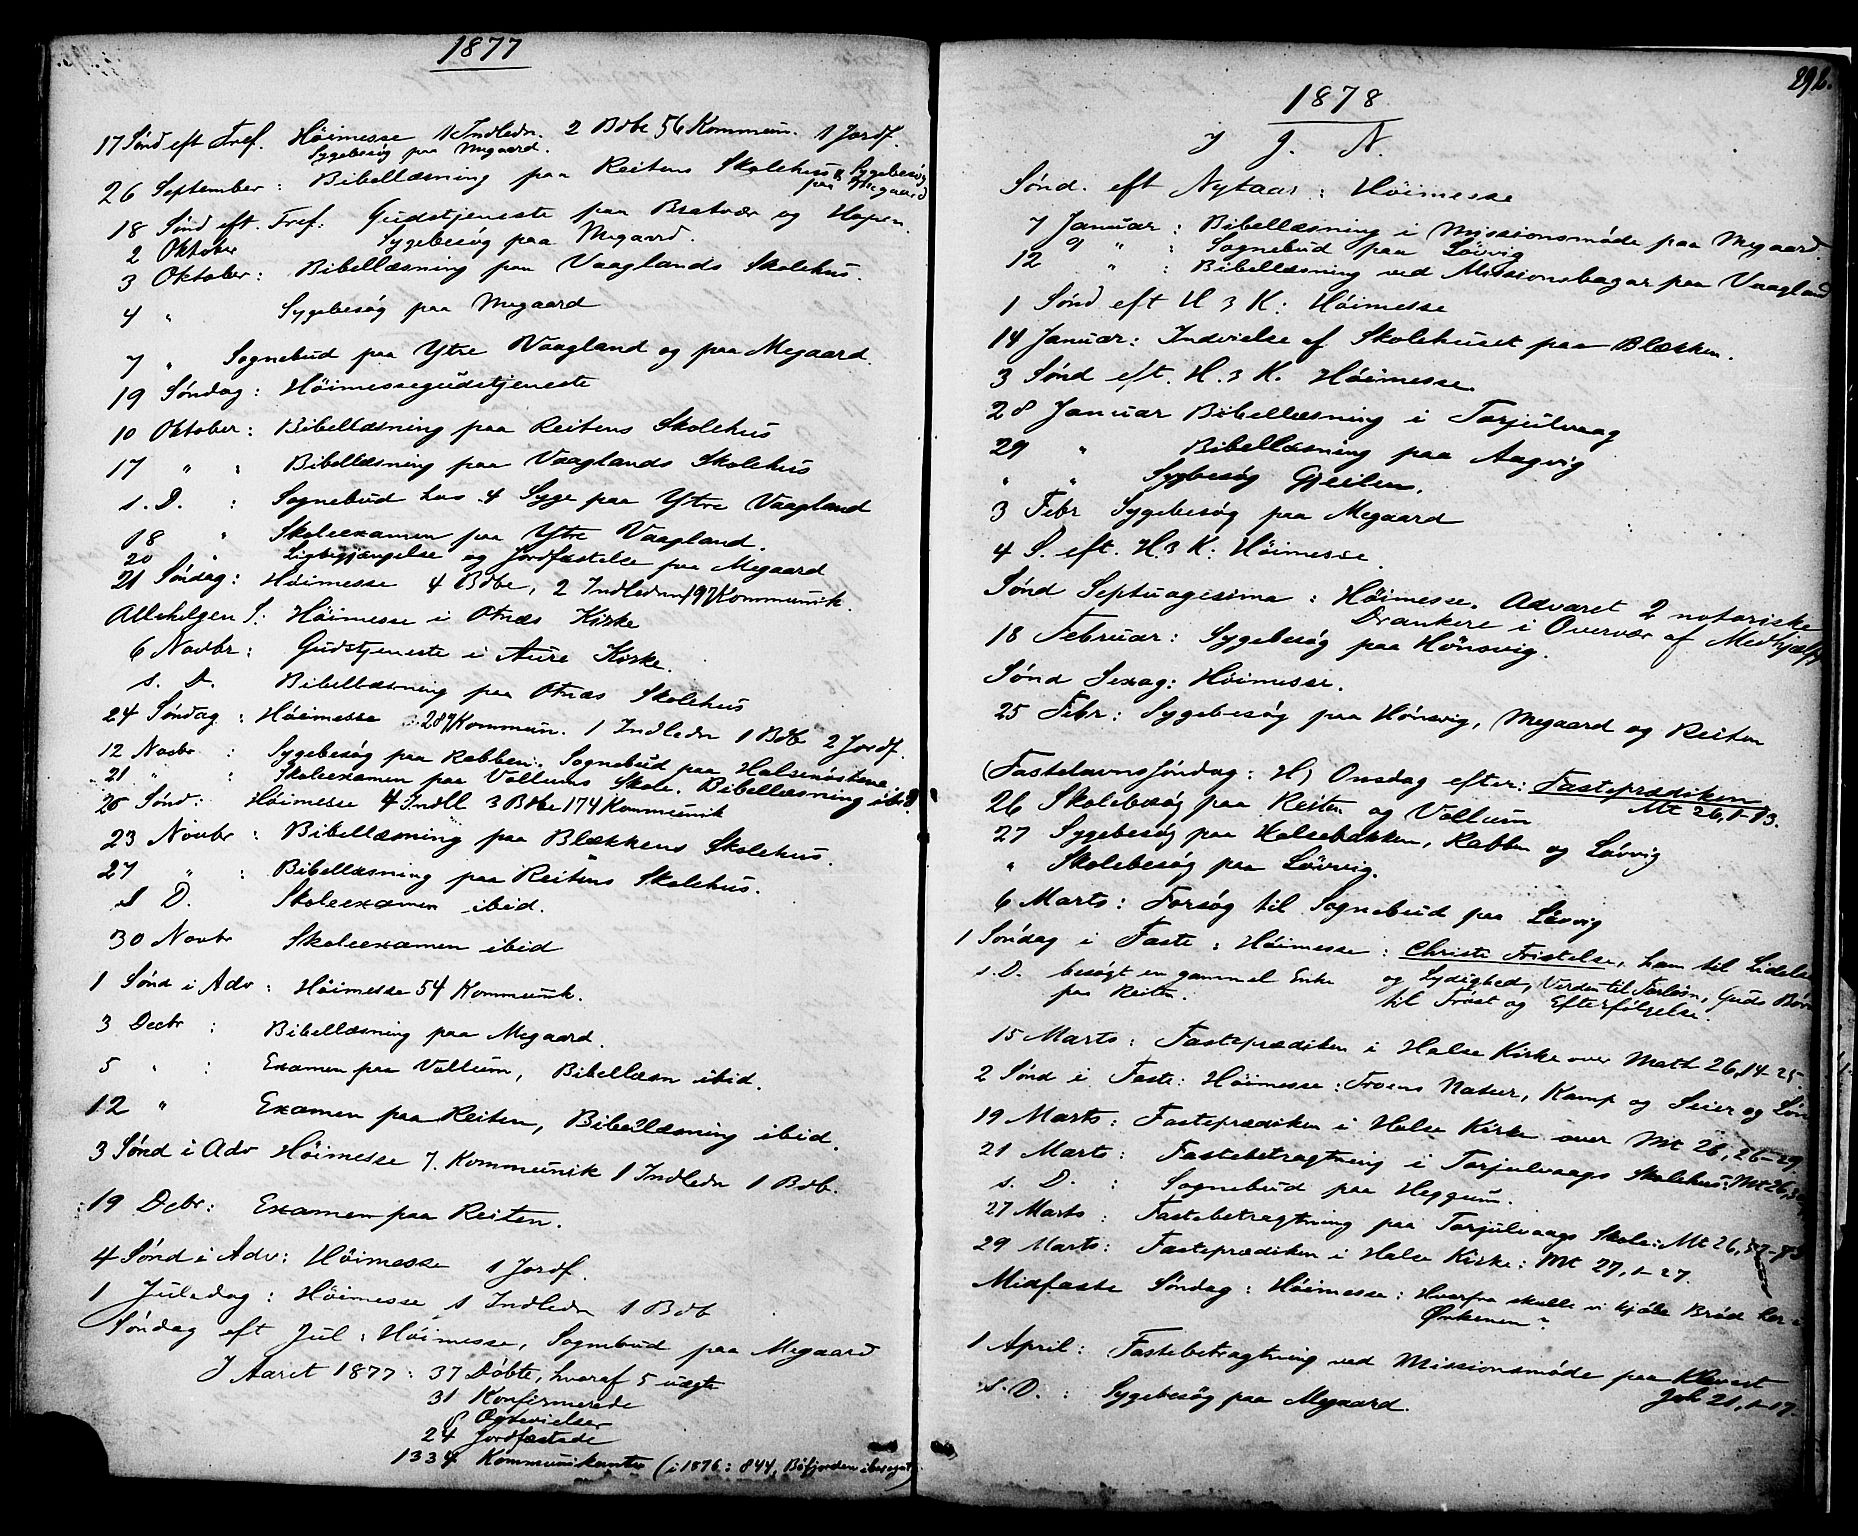 1877
17 Sönd eft Tref. Höimesse 1 Indledn. 2 Bdbe 56 Kommun. 1 Jordf.
Sygebesög paa Megaard.
26 September : Bibellæsning paa Reitens Skolehus & Sygebesög
paa Megaard
18 Sönd eft. Tref: Gudstjeneste paa Bratvær og Hopen.
2 Oktober Sygebesög paa Megaard.
3 Oktober : Bibellæsning paa Vaaglands Skolehus.
4 " Sygebesög paa Megaard
7 " Sognebud paa Ytre Vaagland og paa Megaard.
19 Söndag : Höimessegudstjeneste
10 Oktober : Bibellæsning paa Reitens Skolehus
17 " : Bibellæsning paa Vaaglands Skolehus
s. D. : Sognebud hos 4 Syge paa Ytre Vaagland
18 " Skoleexamen paa Ytre Vaagland.
20 " Ligbigjængelse og Jordfæstelse paa Megaard
21 Söndag : Höimesse 4 Bdbe, 2 Indledn 197 Kommunik.
Allehelgen S. : Höimesse i Otnæs Kirke
6 Novbr : Gudstjeneste i Aure Kirke.
s. D. Bibellæsning paa Otnæs Skolehus
24 Söndag : Höimesse 287 Kommun. 1 Indledn 1 Bdb 2 Jordf.
12 Novbr : Sygebesög paa Rabben. Sognebud paa Halsenöstene
21 " : Skoleexamen paa Vollums Skole. Bibellæsning ibid.
26 Sönd : Höimesse 4 Indll 3 Bdbe 174 Kommunik
23 Novbr : Bibellæsning paa Blækkens Skolehus.
27 " : Bibellæsning paa Reitens Skolehus.
s D. Skoleexamen ibid.
30 Novbr Skoleexamen ibid
1 Sönd i Adv : Höimesse 54 Kommunik.
3 Decbr : Bibellæsning paa Megaard.
5 " : Examen paa Vollum, Bibellæsn ibid.
12 " Examen paa Reiten, Bibellæsning ibid.
3 Sönd i Adv Höimesse 7. Kommunik 1 Indledn 1 Bdb.
19 Dcbr : Examen paa Reiten.
4 Sönd i Adv : Höimesse 1 Jordf.
1 Juledag : Höimesse 1 Indledn 1 Bdb
Söndag eft Jul : Höimesse, Sognebud paa Megaard
I Aaret 1877 : 37 Döbte, hvoraf 5 uægte
31 Konfirmerede
8 Ægtevielser
24 Jordfæstede
1334 Kommunikanter (i 1876 : 844, Böfjorden iberegnet).
292.
1878
I J. N.
Sönd. eft Nytaar : Höimesse
7 Januar : Bibellæsning i Missionsmöde paa Megaard.
9 " : Sognebud paa Lövvig
12 " : Bibellæsning ved Missionsbazar paa Vaagland
1 Sönd eft H 3 K : Höimesse
14 Januar : Indvielse af Skolehuset paa Blækken.
3 Sönd eft. H. 3 K. Höimesse.
28 Januar Bibellæsning i Torjulvaag
29 " Bibellæsning paa Aagvig
" " Sygebesög Gjeilen.
3 Febr Sygebesög paa Megaard
4 S. eft. H. 3 K : Höimesse.
Sönd Septuagesima : Höimesse. Advaret 2 notoriske
Drankere i Overvær af Medhjælp
18 Februar : Sygebesög paa Hönsvig.
Sönd Sexag : Höimesse.
25 Febr : Sygebesög paa Hönsvig, Megaard og Reiten
(Fastelavnssöndag : H) Onsdag efter : Fasteprædiken
Mt 26, 1-13.
26 Skolebesög paa Reiten og Vollum
27 Sygebesög paa Halsebakken, Rabben og Lövvig
" Skolebesög paa Lövvig.
6 Marts : Forsög til Sognebud paa Lövvig
1 Söndag i Faste : Höimesse : Christi Fristelse, ham til Lidelse
s. D. besögt en gammel Enke og Lydighed, Verden til Forlösn, Guds Börn
paa Reiten. til Tröst og Efterfölgelse.
15 Marts : Fasteprædiken i Halse Kirke over Matth 26, 14-25.
2 Sönd i Faste : Höimesse : Troens Natur, Kamp og Seier og Lön
19 Marts : Fasteprædiken i Halse Kirke over Mt 26, 26-29.
21 Marts : Fastebetragtning i Torjulvaags Skolehus : Mt 26,
s. D. : Sognebud paa Heggum.
27 Marts : Fastebetragtning paa Torjulvaags Skole : Mt 26,
29 Marts : Fasteprædiken i Halse Kirke : Mt 27, 1-27.
Midfaste Söndag : Höimesse : Hvorfra skulle vi kjöbe Bröd her i
Örkenen?
1 April : Fastebetragtning ved Missionsmöde paa Klevset
Joh 21, 1-17.
s. D. : Sygebesög paa Megaard.